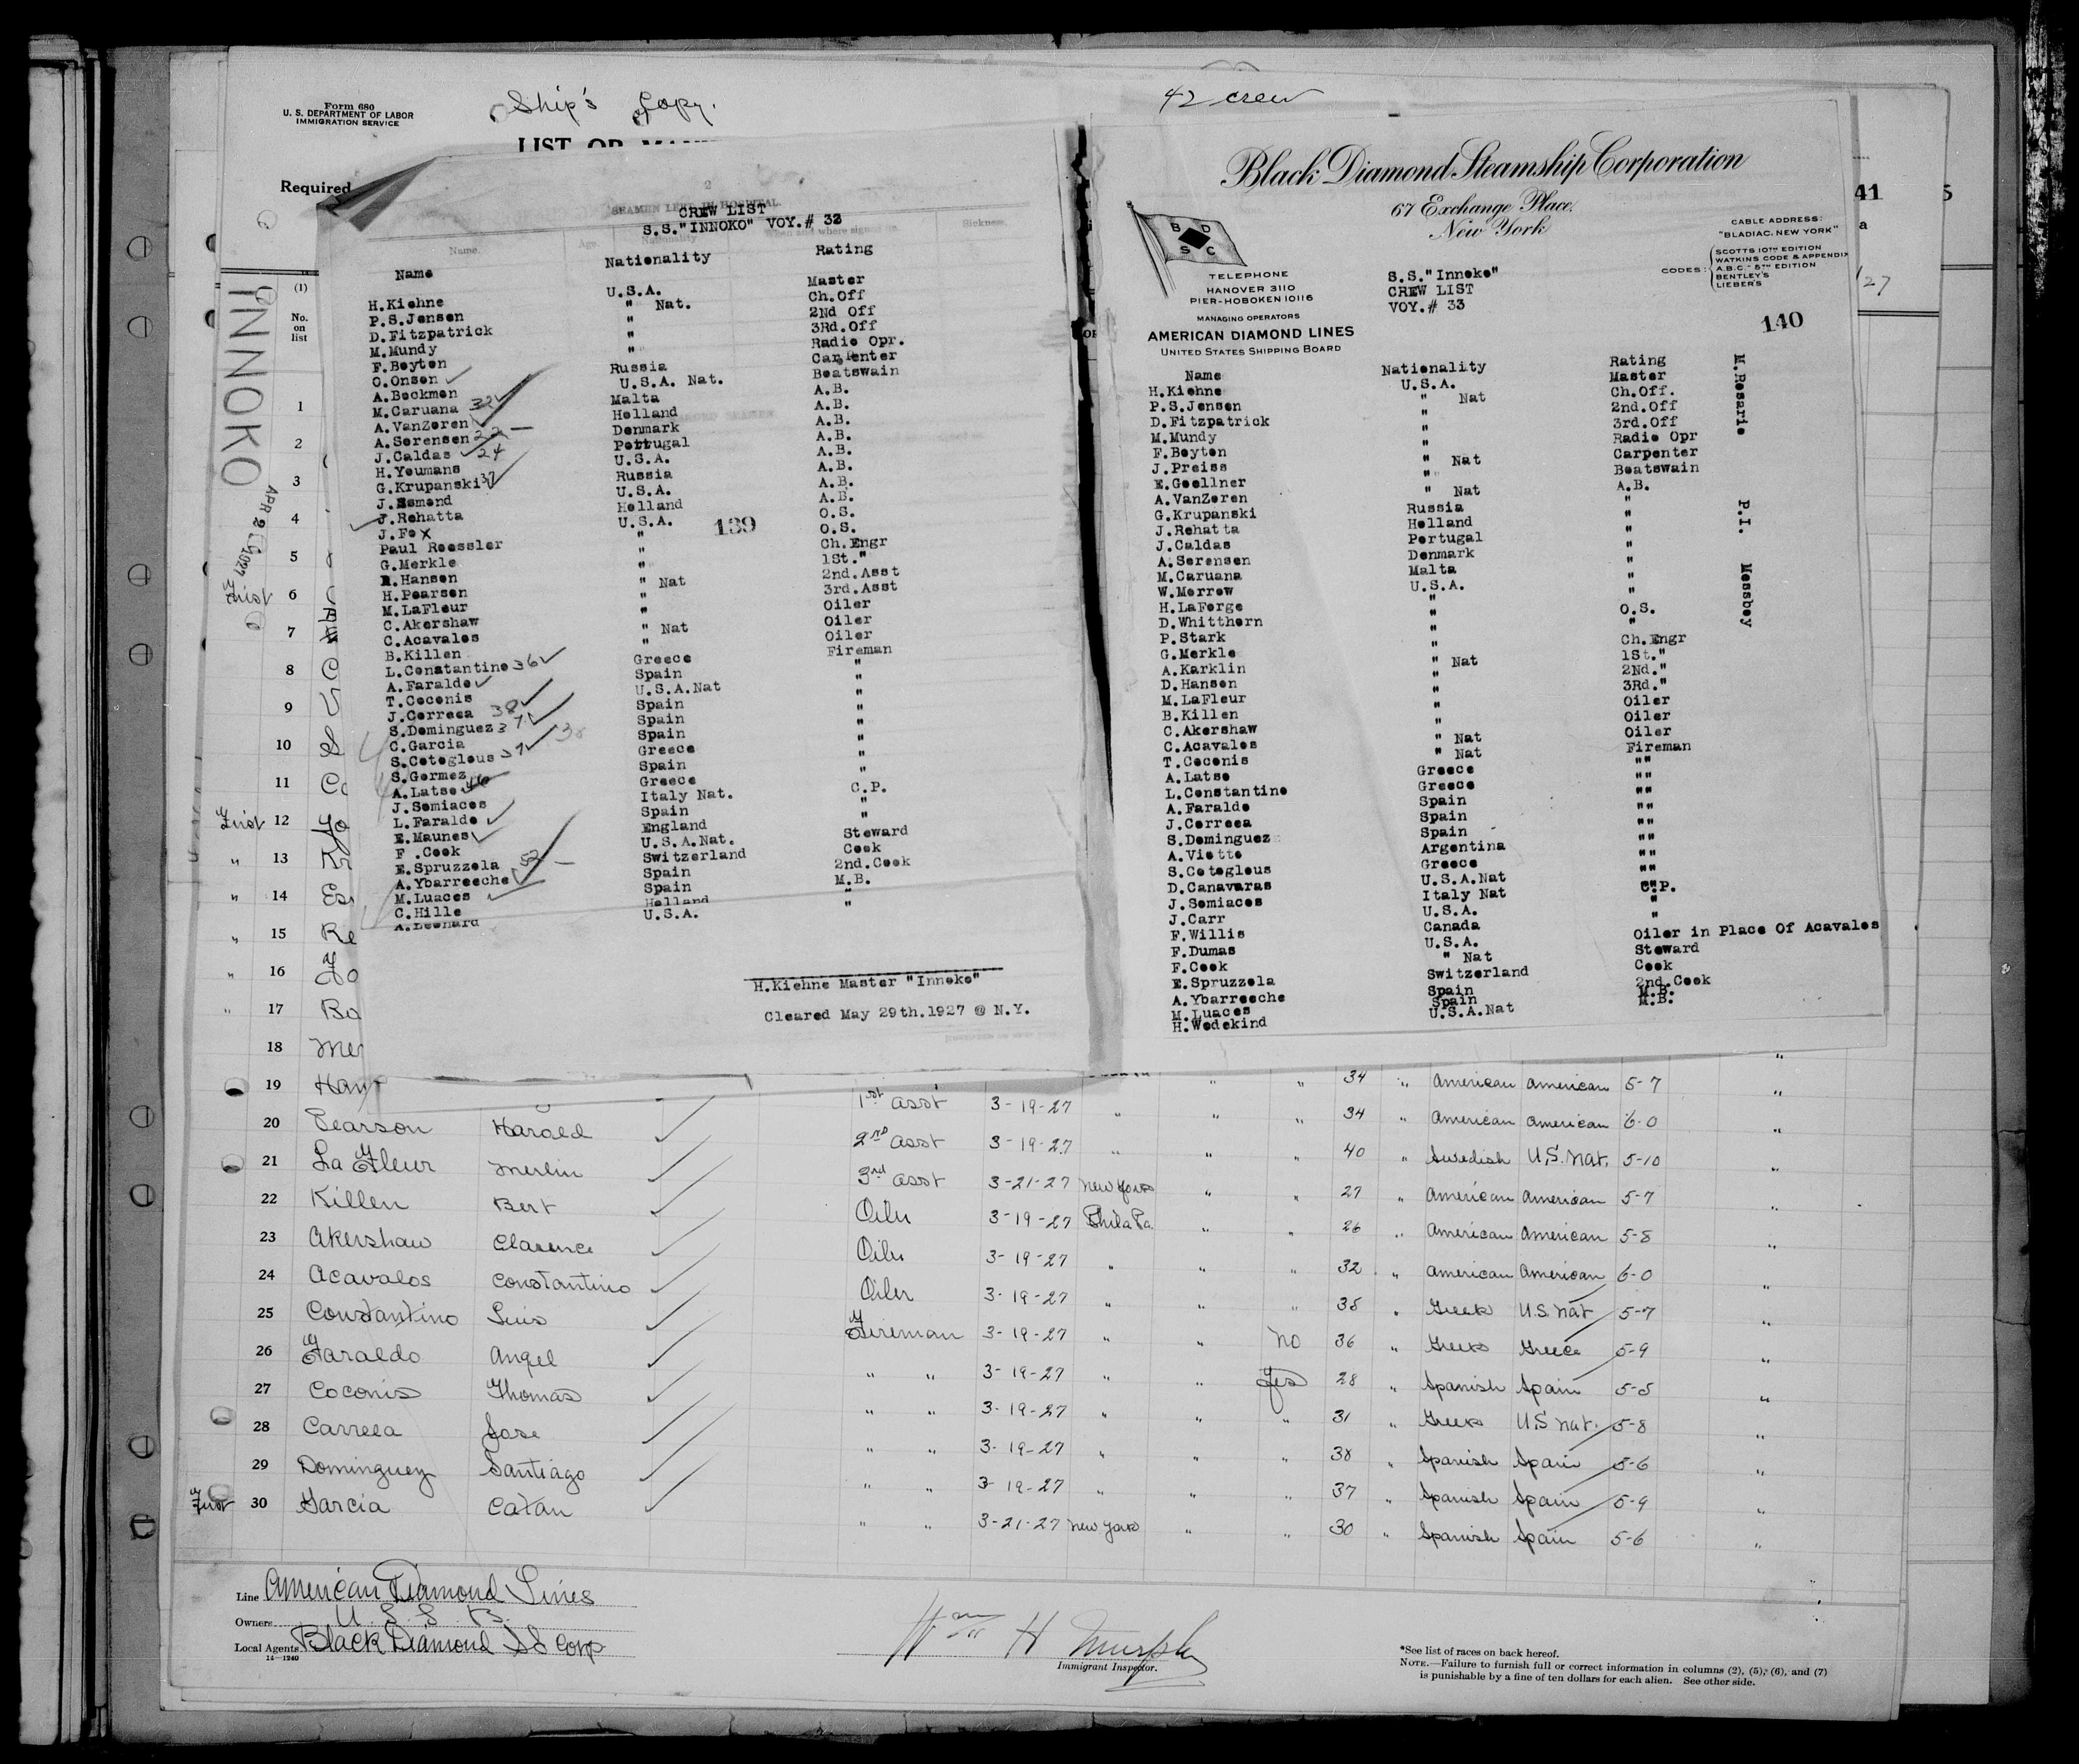 Form 680
U. S. DEPARTMENT OF LABOR
IMMIGRATION SERVICE
Ship's Copy.
LIST OR
Required
(1)
No.
on
list
INNOKO
1927
CREW LIST
S.S."INNOKO" VOY.# 32
Name Nationality Rating
H.Kiehne U.S.A. Master
P.S.Jensen " Nat. Ch.Off
D.Fitzpatrick " 2Nd Off
M.Mundy " 3Rd.Off
F.Boyton " Radio Opr.
O.Onsen Russia Carpenter
A.Beckmen U.S.A. Nat. Boatswain
M.Caruana 32 Malta A.B.
A.VanZoren Holland A.B.
A.Sorensen 22 Denmark A.B.
J.Caldas 24 Portugal A.B.
H.Youmans U.S.A. A.B.
G.Krupanski 37 Russia A.B.
J.Esmond U.S.A. A.B.
J.Rehatta Holland A.B.
J.Fox U.S.A. O.S.
139
Paul Roessler " O.S.
G.Merkle " Ch.Engr
R.Hansen " 1St."
H.Pearson " Nat 2nd.Asst
M.LaFleur " 3rd.Asst
C.Akershaw " Oiler
C.Acavalos " Nat Oiler
B.Killen " Oiler
L.Constantino 36 Greece Fireman
A.Faraldo Spain "
T.Coconis U.S.A.Nat "
J.Correea 38 Spain "
S.Dominguez 37 Spain "
C.Garcia Spain "
S.Cotoglous 37 Greece "
S.Gormez Spain "
A.Latso 46 Greece "
J.Semiacos Italy Nat. C.P.
L.Faraldo Spain "
E.Maunes England "
F.Cook U.S.A.Nat. Steward
E.Spruzzola Switzerland Cook
A.Ybarreeche 52 Spain 2nd.Cook
M.Luaces Spain M.B.
C.Hille Holland "
A.Leonard U.S.A. "
H.Kiehne Master "Innoko"
Cleared May 29th.1927 @ N.Y.
42 crew
Black Diamond Steamship Corporation
67 Exchange Place.
New York
B D
S C
CABLE ADDRESS:
"BLADIAC, NEW YORK"
CODES:
SCOTTS 10TH EDITION
WATKINS CODE & APPENDIX
A.B.C. 5TH EDITION
BENTLEY'S
LIEBER'S
TELEPHONE
HANOVER 3110
PIER-HOBOKEN 10116
MANAGING OPERATORS
AMERICAN DIAMOND LINES
UNITED STATES SHIPPING BOARD
S.S."Innoko"
CREW LIST
VOY.# 33
140
Name Nationality Rating
H.Kiehne U.S.A. Master
P.S.Jensen " Nat Ch.Off.
D.Fitzpatrick " 2nd.Off
M.Mundy " 3rd.Off
F.Boyton " Radio Opr
J.Preiss " Nat Carpenter
E.Goellner " Boatswain
A.VanZoren " Nat A.B.
G.Krupanski Russia "
J.Rehatta Holland "
J.Caldas Portugal "
A.Sorensen Denmark "
M.Caruana Malta "
W.Morrow U.S.A. "
H.LaForge " "
D.Whitthorn " O.S.
P.Stark " "
G.Merkle " Ch.Engr
A.Karklin " Nat 1St."
D.Hansen " 2Nd."
M.LaFleur " 3Rd."
B.Killen " Oiler
C.Akershaw " Oiler
C.Acavalos " Nat Oiler
T.Coconis " Nat Fireman
A.Latso Greece ""
L.Constantino Greece ""
A.Faraldo Spain ""
J.Correea Spain ""
S.Dominguez Spain ""
A.Viotto Argentina ""
S.Cotoglous Greece ""
D.Canavaras U.S.A.Nat ""
J.Semiacos Italy Nat C.P.
J.Carr U.S.A. "
F.Willis Canada "
F.Dumas U.S.A. Oiler in Place Of Acavalos
F.Cook " Nat Steward
E.Spruzzola Switzerland Cook
A.Ybarreeche Spain 2nd.Cook
M.Luaces Spain M.B.
H.Wedekind U.S.A.Nat M.B.
M.Rosario P.I. Messboy
19 1st asst 3-19-27 " " 34 " American American 5-7 "
20 Pearson Harold 2nd asst 3-19-27 " " " 34 " American American 6-0 "
21 La Fleur Merlin 3rd asst 3-21-27 New York " " 40 " Swedish U.S. Nat. 5-10 "
22 Killen Bert Oiler 3-19-27 Phila Pa. " " 27 " American American 5-7 "
23 Akershaw Clarence Oiler 3-19-27 " " " 26 " American American 5-8 "
24 Acavalos Constantino Oiler 3-19-27 " " " 32 " American American 6-0 "
25 Constantino Luis Fireman 3-19-27 " " " 35 " Greek U.S. Nat 5-7 "
26 Faraldo Angel " " 3-19-27 " " No 36 " Greek Greece 5-9 "
27 Coconis Thomas " " 3-19-27 " " Yes 28 " Spanish Spain 5-5 "
28 Carreea Jose " " 3-19-27 " " " 31 " Greek U.S Nat. 5-8 "
29 Dominguez Santiago " " 3-19-27 " " " 38 " Spanish Spain 5-6 "
First 30 Garcia Catan " " 3-21-27 New York " " 37 " Spanish Spain 5-9 "
30 " Spanish Spain 5-6 "
Line American Diamond Lines
Owners U. S. S. B.
Local Agents Black Diamond SS Corp
14-1240
Wm H Murphy
Immigrant Inspector.
*See list of races on back hereof.
NOTE.—Failure to furnish full or correct information in columns (2), (5), (6), and (7)
is punishable by a fine of ten dollars for each alien. See other side.